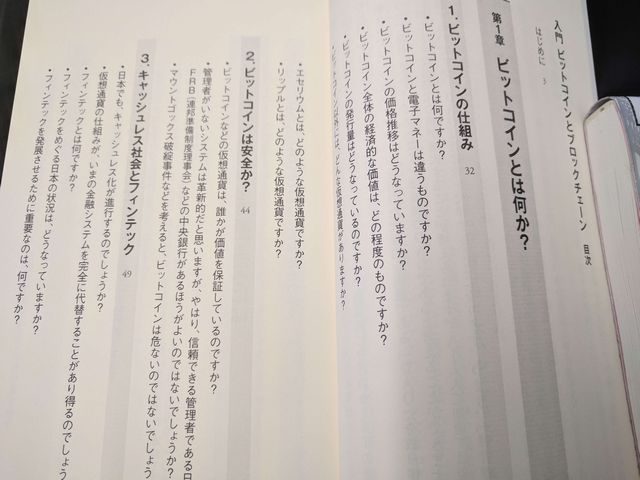 入門 ビットコインとブロックチェーン 目次
はじめに 3
第1章 ビットコインとは何か?
1. ビットコインの仕組み 32
・ビットコインとは何ですか?
・ビットコインと電子マネーは違うものですか?
・ビットコインの価格推移はどうなっていますか?
・ビットコイン全体の経済的な価値は、どの程度のものですか?
・ビットコインの発行量はどうなっているのですか?
・ビットコイン以外には、どんな仮想通貨がありますか?
・エセリウムとは、どのような仮想通貨ですか?
・リップルとは、どのような仮想通貨ですか?
2. ビットコインは安全か? 44
・ビットコインなどの仮想通貨は、誰かが価値を保証しているのですか?
・管理者がいないシステムは革新的だと思いますが、やはり、信頼できる管理者である日
FRB(連邦準備制度理事会)などの中央銀行があるほうがよいのではないでしょうか?
・マウントゴックス破綻事件などを考えると、ビットコインは危ないのではないでしょう
3. キャッシュレス社会とフィンテック 49
・日本でも、キャッシュレス化が進行するのでしょうか?
・仮想通貨の仕組みが、いまの金融システムを完全に代替することがあり得るのでしょう
・フィンテックとは何ですか?
・フィンテックをめぐる日本の状況は、どうなっていますか?
・フィンテックを発展させるために重要なのは、何ですか?